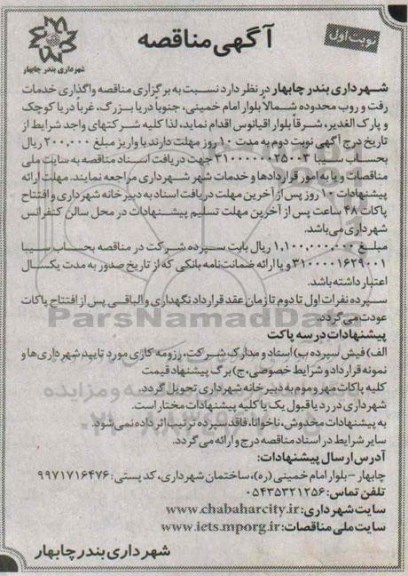 آگهی مناقصه
نوبت اول
شهرداری بندر چابهار
شهرداری بندر چابهار در نظر دارد نسبت به برگزاری مناقصه واگذاری خدمات
رفت و روب محدوده شمالاً بلوار امام خمینی، جنوباً دریا بزرگ، غرباً دریا کوچک
و پارک الغدیر، شرقاً بلوار اقیانوس اقدام نماید، لذا کلیه شرکتهای واجد شرایط از
تاریخ درج آگهی نوبت دوم به مدت ۱۰ روز مهلت دارند با واریز مبلغ ۲۰۰,۰۰۰ ریال
بحساب سیبا ۳۱۰۰۰۰۰۲۵۰۰۳ جهت دریافت اسناد مناقصه به سایت ملی
مناقصات و یا به امور قراردادها و خدمات شهر شهرداری مراجعه نمایند. مهلت ارائه
پیشنهادات ۱۰ روز پس از آخرین مهلت دریافت اسناد به دبیرخانه شهرداری و افتتاح
پاکات ۴۸ ساعت پس از آخرین مهلت تسلیم پیشنهادات در محل سالن کنفرانس
شهرداری می‌باشد.
مبلغ ۱,۱۰۰,۰۰۰,۰۰۰ ریال بابت سپرده شرکت در مناقصه بحساب سیبا
۳۱۰۰۰۰۱۶۲۹۰۰۱ و یا ارائه ضمانت‌نامه بانکی که از تاریخ صدور به مدت یکسال
اعتبار داشته باشد.
سپرده نفرات اول تا دوم تا زمان عقد قرارداد نگهداری و الباقی پس از افتتاح پاکات
عودت می‌گردد.
پیشنهادات در سه پاکت
الف) فیش سپرده ب) اسناد و مدارک شرکت، رزومه کاری مورد تایید شهرداری‌ها و
نمونه قرارداد و شرایط خصوصی، ج) برگ پیشنهاد قیمت
کلیه پاکات مهر و موم به دبیرخانه شهرداری تحویل گردد.
شهرداری در رد یا قبول یک یا کلیه پیشنهادات مختار است.
به پیشنهادات مخدوش، ناخوانا، فاقد سپرده ترتیب اثر داده نمی شود.
سایر شرایط در اسناد مناقصه درج و ارائه می گردد.
آدرس ارسال پیشنهادات:
چابهار - بلوار امام خمینی (ره)، ساختمان شهرداری، کد پستی: ۹۹۷۱۷۱۶۴۷۶
تلفن تماس: ۰۵۴۳۵۳۲۱۲۵۶
سایت شهرداری: www.chabaharcity.ir
سایت ملی مناقصات: www.iets.mporg.ir
شهرداری بندر چابهار
ParsNamadData